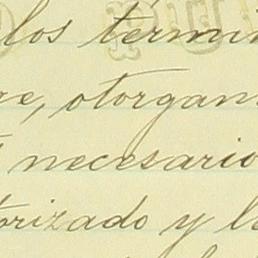 los térmi
re, otorgan
necesario
torizado y l